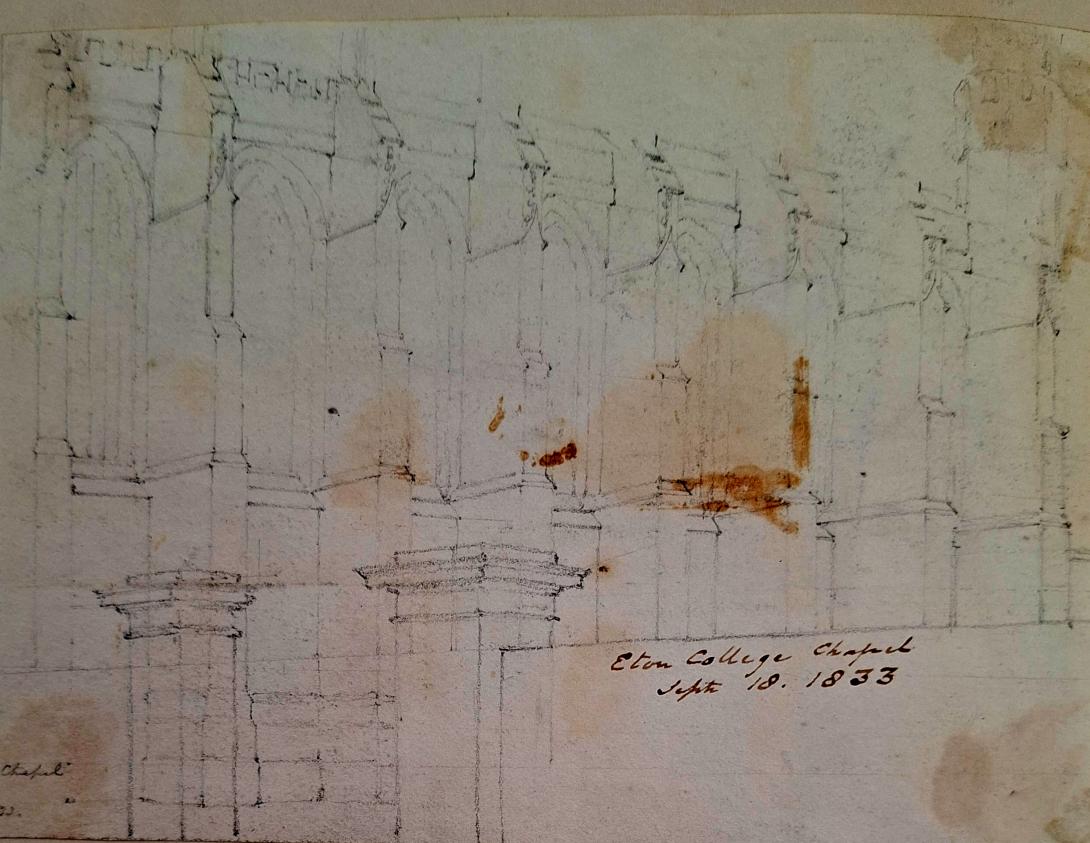 Eton College Chapel
Septr 18. 1833
Chapel
33.